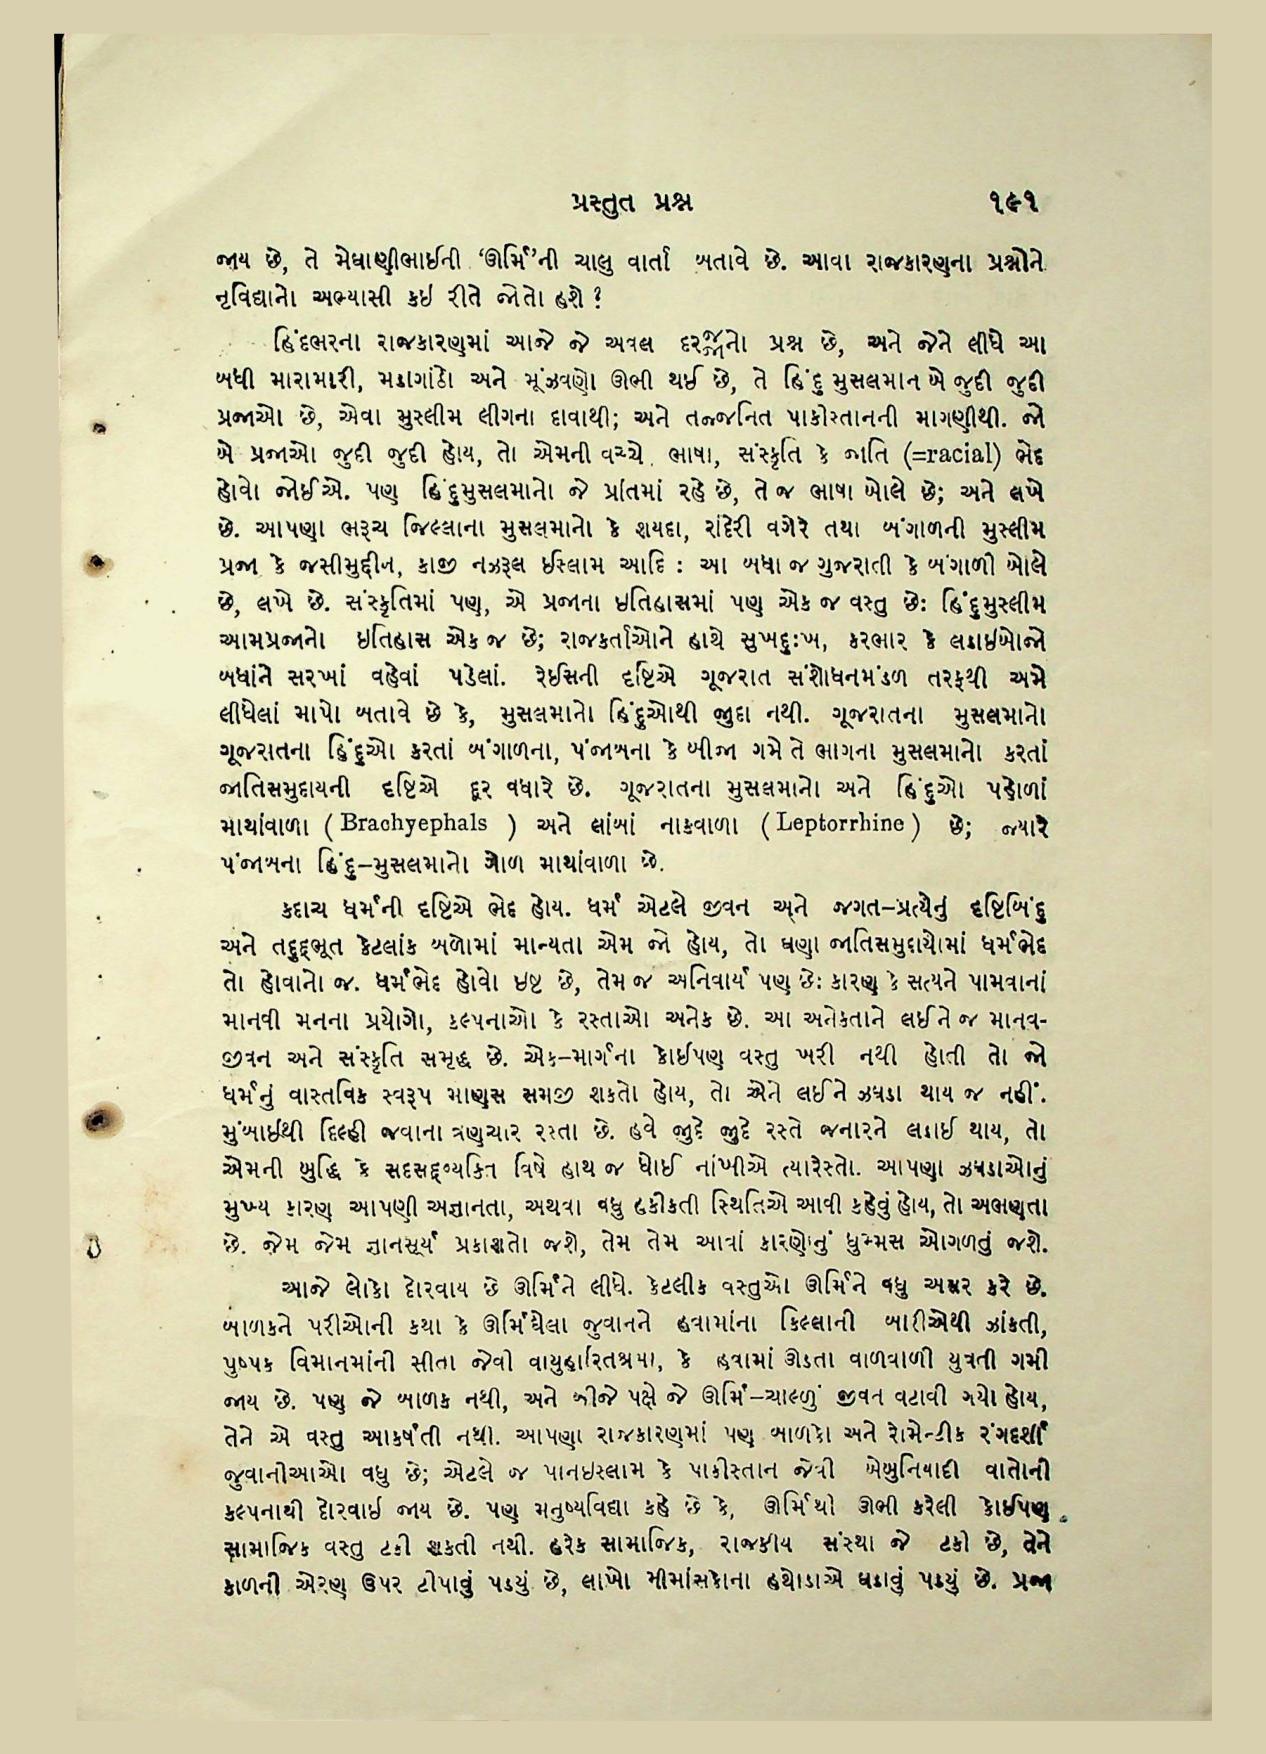 પ્રસ્તુત પ્રશ્ન ૧૯૧
જાય છે, તે મેઘાણીભાઈની ‘ઊર્મિ’ની ચાલુ વાર્તા બતાવે છે. આવા રાજકારણના પ્રશ્નોને
નૃવિદ્યાનો અભ્યાસી કઈ રીતે જોતો હશે ?
હિંદભરના રાજકારણમાં આજે જે અવલ દરજ્જાનો પ્રશ્ન છે, અને જેને લીધે આ
બધી મારામારી, મડાગાંઠો અને મૂંઝવણો ઊભી થઈ છે, તે હિંદુ મુસલમાન બે જુદી જુદી
પ્રજાઓ છે, એવા મુસ્લીમ લીગના દાવાથી; અને તજ્જનિત પાકીસ્તાનની માગણીથી. જો
બે પ્રજાઓ જુદી જુદી હોય, તો એમની વચ્ચે ભાષા, સંસ્કૃતિ કે જાતિ (=racial) ભેદ
હોવો જોઈએ. પણ હિંદુમુસલમાનો જે પ્રાંતમાં રહે છે, તે જ ભાષા બોલે છે; અને લખે
છે. આપણા ભરૂચ જિલ્લાના મુસલમાનો કે શયદા, રાંદેરી વગેરે તથા બંગાળની મુસ્લીમ
પ્રજા કે જસીમુદ્દીન, કાજી નઝરૂલ ઈસ્લામ આદિ : આ બધા જ ગુજરાતી કે બંગાળી બોલે
છે, લખે છે. સંસ્કૃતિમાં પણ, એ પ્રજાના ઇતિહાસમાં પણ એક જ વસ્તુ છેઃ હિંદુમુસ્લીમ
આમપ્રજાનો ઇતિહાસ એક જ છે; રાજકર્તાઓને હાથે સુખદુઃખ, કરભાર કે લડાઇઓબોજો
બધાંને સરખાં વહેવાં પડેલાં. રેઈસિની દૃષ્ટિએ ગૂજરાત સંશોધનમંડળ તરફથી અમે
લીધેલાં માપો બતાવે છે કે, મુસલમાનો હિંદુઓથી જુદા નથી. ગૂજરાતના મુસલમાનો
ગૂજરાતના હિંદુઓ કરતાં બંગાળના, પંજાબના કે બીજા ગમે તે ભાગના મુસલમાનો કરતાં
જાતિસમુદાયની દૃષ્ટિએ દૂર વધારે છે. ગૂજરાતના મુસલમાનો અને હિંદુઓ પહોળાં
માથાંવાળા ( Brachyephals ) અને લાંબાં નાકવાળા ( Leptorrhine ) છે; જ્યારે
પંજાબના હિંદુ–મુસલમાનો ગોળ માથાંવાળા છે.
કદાચ ધર્મની દૃષ્ટિએ ભેદ હોય. ધર્મ એટલે જીવન અને જગત–પ્રત્યેનું દૃષ્ટિબિંદુ
અને તદ્દભૂત કેટલાંક બળોમાં માન્યતા એમ જો હોય, તો ઘણા જાતિસમુદાયોમાં ધર્મભેદ
તો હોવાનો જ. ધર્મભેદ હોવો ઇષ્ટ છે, તેમ જ અનિવાર્ય પણ છેઃ કારણ કે સત્યને પામવાનાં
માનવી મનના પ્રયોગો, કલ્પનાઓ કે રસ્તાઓ અનેક છે. આ અનેકતાને લઈને જ માનવ-
જીવન અને સંસ્કૃતિ સમૃદ્ધ છે. એક–માર્ગના કોઈપણ વસ્તુ ખરી નથી હોતી તો જો
ધર્મનું વાસ્તવિક સ્વરૂપ માણસ સમજી શકતો હોય, તો એને લઈને ઝઘડા થાય જ નહીં.
મુંબાઇથી દિલ્હી જવાના ત્રણચાર રસ્તા છે. હવે જુદે જુદે રસ્તે જનારને લડાઈ થાય, તો
એમની બુદ્ધિ કે સદસદ્વ્યક્તિ વિષે હાથ જ ધોઈ નાંખીએ ત્યારેસ્તો. આપણા ઝઘડાઓનું
મુખ્ય કારણ આપણી અજ્ઞાનતા, અથવા વધુ હકીકતી સ્થિતિએ આવી કહેવું હોય, તો અભણતા
છે. જેમ જેમ જ્ઞાનસૂર્ય પ્રકાશતો જશે, તેમ તેમ આવાં કારણોનું ધુમ્મસ ઓગળતું જશે.
આજે લોકો દોરવાય છે ઊર્મિને લીધે. કેટલીક વસ્તુઓ ઊર્મિને વધુ અસર કરે છે.
બાળકને પરીઓની કથા કે ઊર્મિઘેલા જુવાનને હવામાંના કિલ્લાની બારીએથી ઝાંકતી,
પુષ્પક વિમાનમાંની સીતા જેવી વાયુહારિતશ્રમા, કે હવામાં ઊડતા વાળવાળી યુવતી ગમી
જાય છે. પણ જે બાળક નથી, અને બીજે પક્ષે જે ઊર્મિ–ચાલ્યું જીવન વટાવી ગયો હોય,
તેને એ વસ્તુ આકર્ષતી નથી. આપણા રાજકારણમાં પણ બાળકો અને રોમેન્ટીક રંગદર્શી
જુવાનીઆઓ વધુ છે; એટલે જ પાનઇસ્લામ કે પાકીસ્તાન જેવી બેબુનિયાદી વાતોની
કલ્પનાથી દોરવાઇ જાય છે. પણ મનુષ્યવિદ્યા કહે છે કે, ઊર્મિથી ઊભી કરેલી કોઈપણ
સામાજિક વસ્તુ ટકી શકતી નથી. હરેક સામાજિક, રાજકીય સંસ્થા જે ટકી છે, તેને
કાળની એરણ ઉપર ટીપાવું પડ્યું છે, લાખો મીમાંસકોના હથોડાએ ઘડાવું પડ્યું છે. પ્રજા